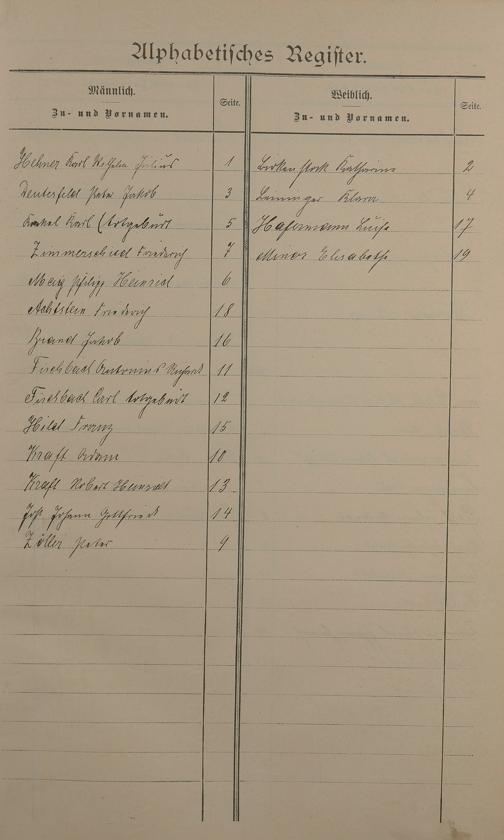 Alphabetisches Register.
Männlich.
Zu- und Vornamen.
Seite.
Weiblich.
Zu- und Vornamen.
Seite.
Hehner Karl Wilhelm Julius 1
Deuterfeld Peter Jakob 3
Karl (totgeburt 5
Zimmerschied Friedrich 7
Philipp Heinrich 6
Achtstein Friedrich 18
Brand Jakob 16
Fischbach Antonius 11
Fischbach Carl totgeburt 12
Hild Franz 15
Kraft Adam 10
Kraft Robert Heinrich 13
Johann Gottfried 14
Zöller Peter 9
Birkenstock Katharina 2
Klara 4
Hafermann Luise 17
Minor Elisabethe 19